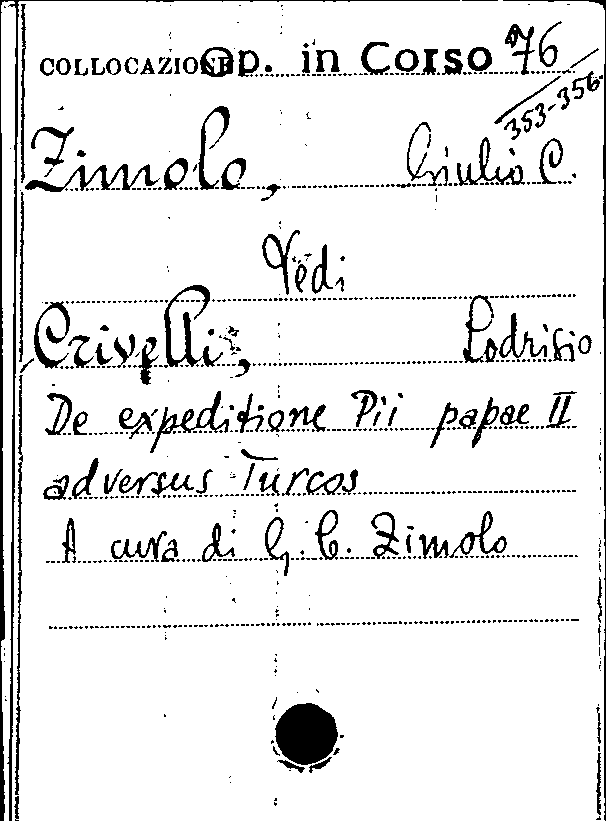 COLLOCAZIONE Op. in Corso 76
353-356.
Zimolo, Giulio C.
Vedi
Crivelli, Lodrisio
De expeditione Pii papae II
adversus Turcos
A cura di G. C. Zimolo